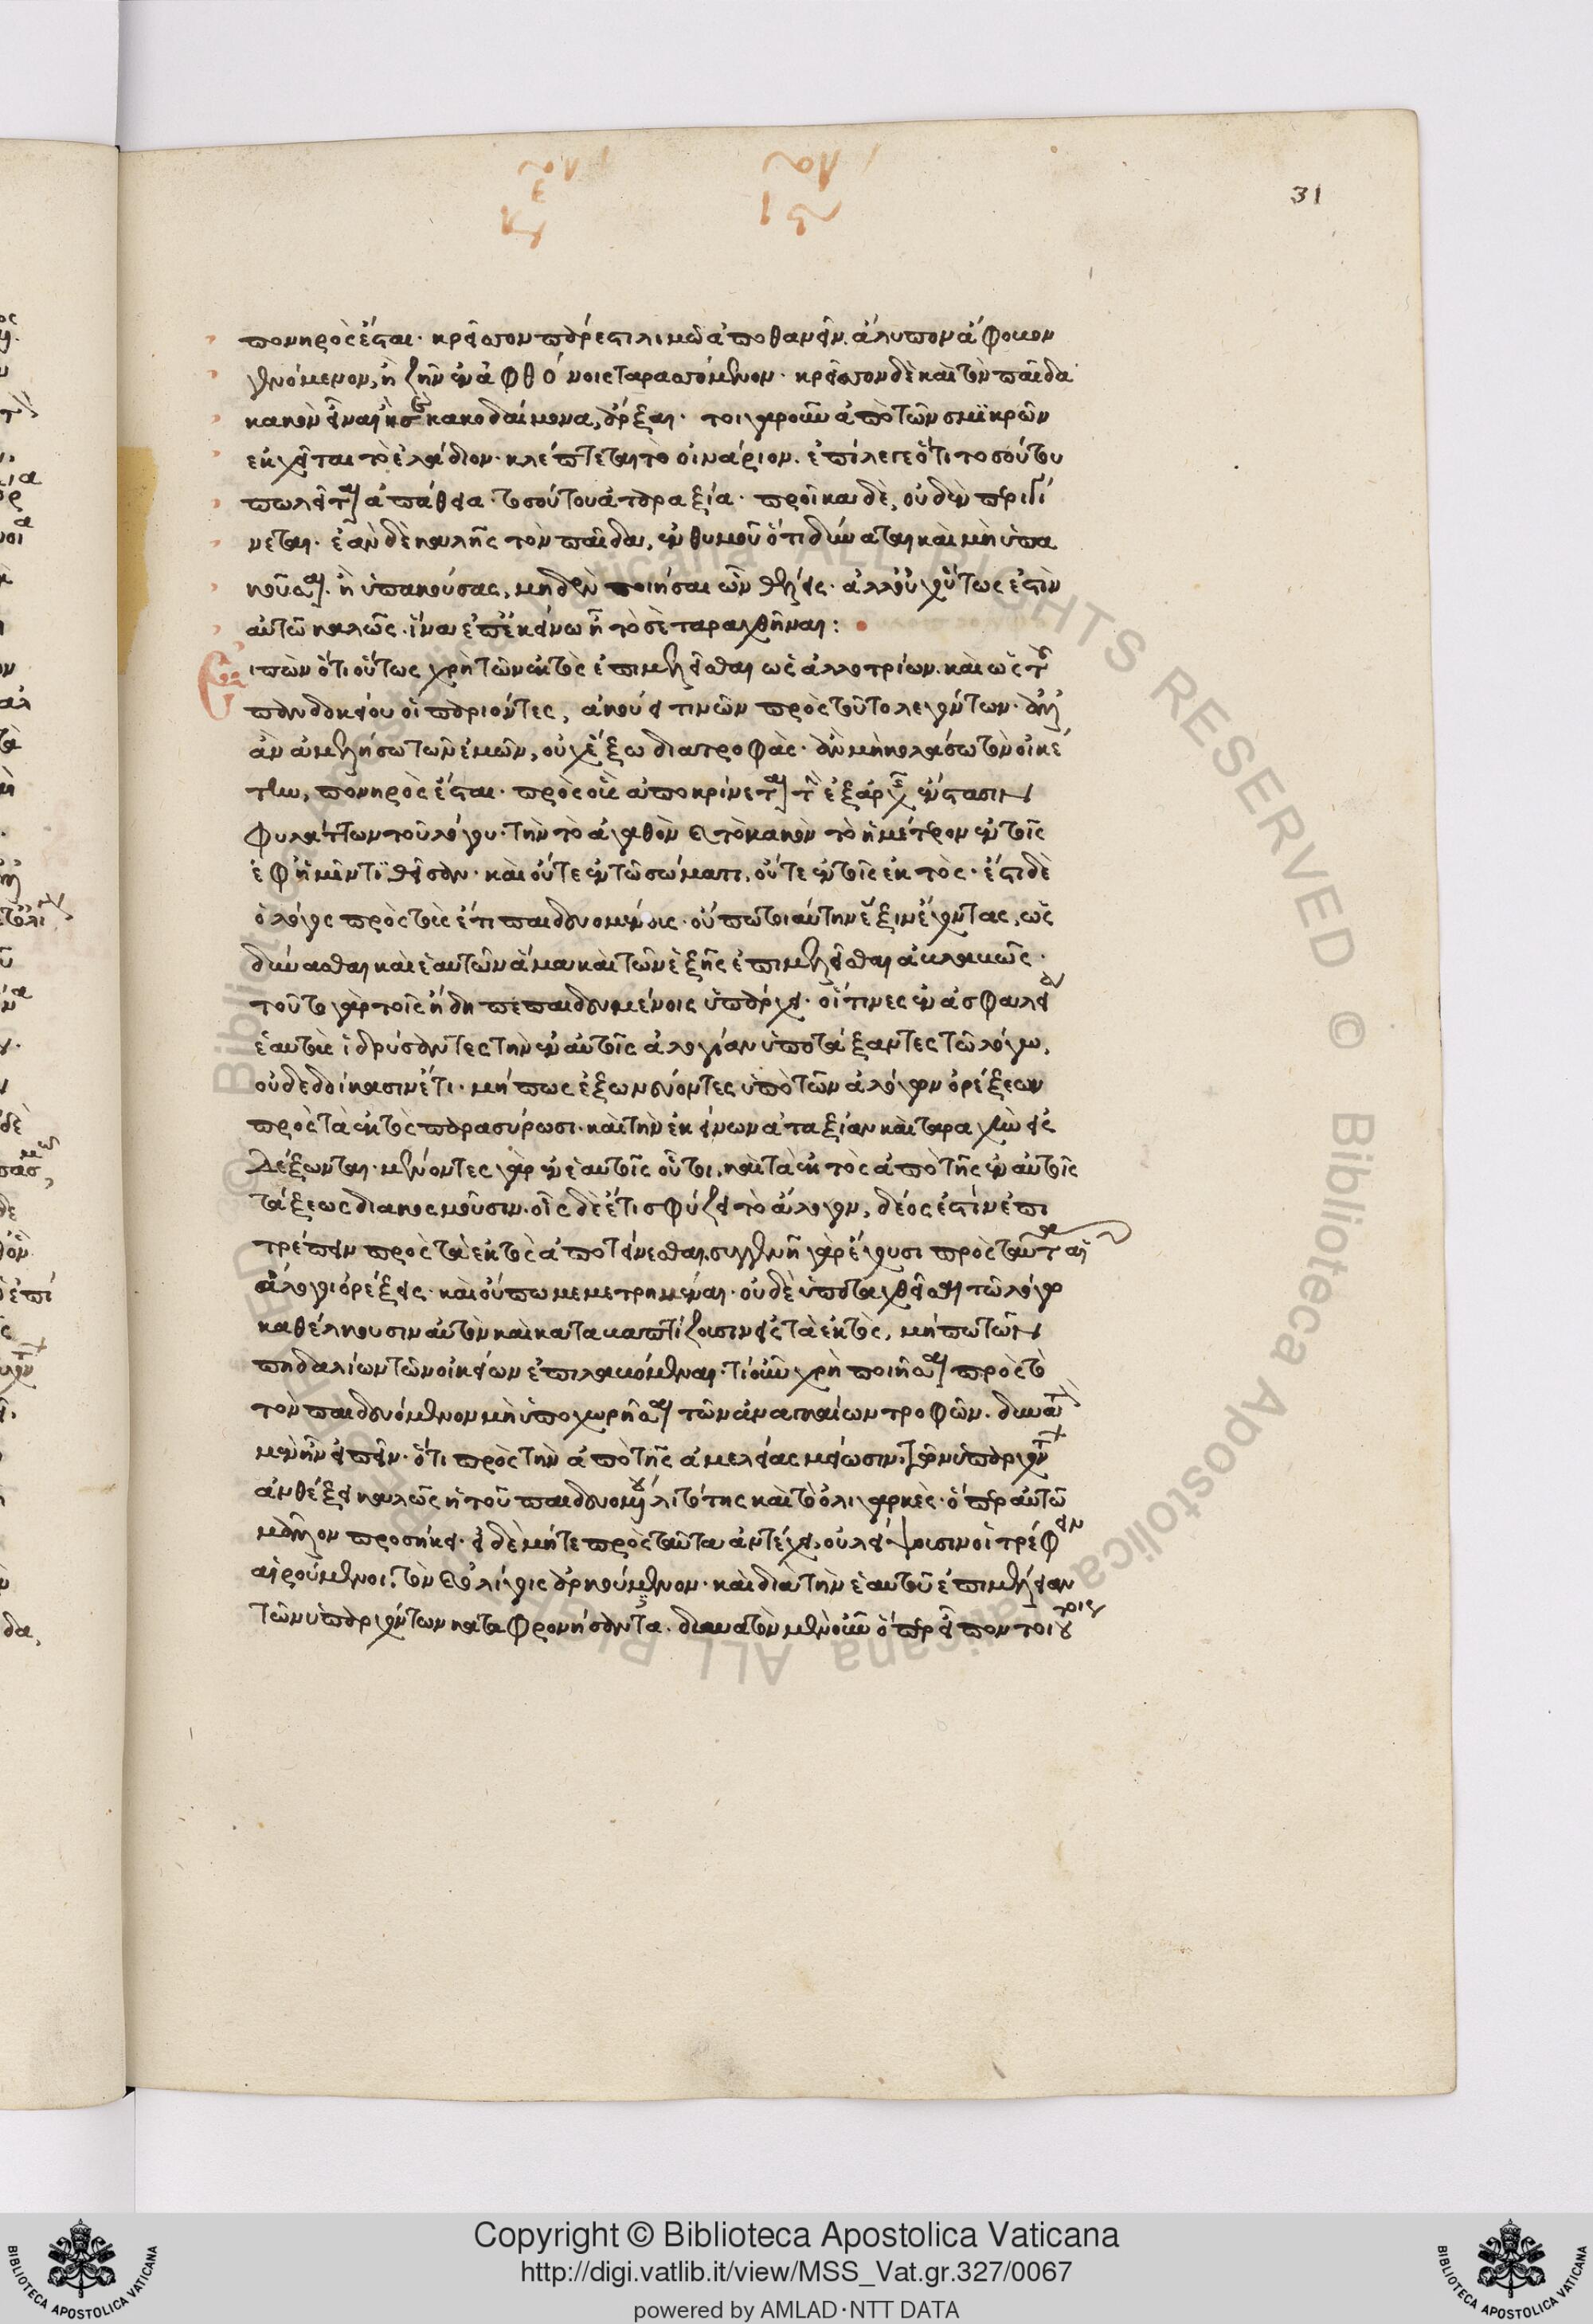 31
πονηρὸς ἔσται· κρεῖττον γάρ ἐστι λιμῷ ἀποθανεῖν ἄλυπον ἄφοβον
γενόμενον, ἢ ζῆν ἐν ἀφθόνοις ταραττόμενον· κρεῖττον δὲ καὶ τὸν παῖδα
κακὸν εἶναι ἢ σὲ κακοδαίμονα, ἄρξαι· τοιγαροῦν ἀπὸ τῶν σμϊκρῶν
ἐκχεῖται τὸ ἐλάδιον· κλέπτεται τὸ οἰνάριον. ἐπίλεγε ὅτι τοσούτου
πωλεῖται ἀπάθεια· τοσούτου ἀταραξία· προῖκα δὲ, οὐδὲν περιγί
νεται· ἐὰν δὲ καλῇς τὸν παῖδα, ἐνθυμοῦ ὅτι δύναται καὶ μὴ ὑπα
κοῦσαι· ἢ ὑπακούσας, μηδὲν ποιῆσαι ὧν θέλεις· ἀλλ' οὐχ οὕτως ἐστὶν
αὐτῷ καλῶς· ἵνα ἐπ' ἐκείνῳ ᾖ τὸ σὲ ταραχθῆναι:
Εἰπὼν ὅτι οὕτως χρὴ τῶν ἐκτὸς ἐπιμελεῖσθαι ὡς ἀλλοτρίων. καὶ ὡς τοῦ
πανδοκείου οἱ παριόντες, ἀκούει τινῶν πρὸς τοῦτο λεγόντων· ὅτι
ἂν ἀμελήσω τῶν ἐμῶν, οὐχ ἕξω διατροφάς· ἂν μὴ κολάσω τὸν οἰκέ
την, πονηρὸς ἔσται· πρὸς οὓς ἀποκρίνεται τὴν ἐξ ἀρχῆς ἔνστασιν
φυλάττων τοῦ λόγου· τὴν τὸ ἀγαθὸν καὶ τὸ κακὸν τὸ ἡμέτερον ἐν τοῖς
ἐφ' ἡμῖν τϊθεῖσαν· καὶ οὔτε ἐν τῷ σώματι, οὔτε ἐν τοῖς ἐκτός· ἔστι δὲ
ὁ λόγος πρὸς τοὺς ἔτι παιδευομένους· οὔπω τοιαύτην ἕξιν ἔχοντας, ὡς
δύνασθαι καὶ ἑαυτῶν ἅμα καὶ τῶν ἑξῆς ἐπιμελεῖσθαι ἀβλαβῶς·
τοῦτο γὰρ τοῖς ἤδη πεπαιδευμένοις ὑπάρχει· οἵτινες ἐν ἀσφαλεῖ
ἑαυτοὺς ἱδρύσαντες τὴν ἐν αὐτοῖς ἀλογίαν ὑποτάξαντες τῷ λόγῳ,
οὐ δεδοίκασιν ἔτι· μή πως ἐξωνεύοντες ὑπὸ τῶν ἀλόγων ὀρέξεων
πρὸς τὰ ἐκτὸς παρασύρωσι· καὶ τὴν ἐκείνων ἀταξίαν καὶ ταραχὴν εἰς
δέξωνται· μένοντες γὰρ ἐν ἑαυτοῖς οὗτοι, καὶ τὰ ἐκτὸς ἀπὸ τῆς ἐν αὐτοῖς
τάξεως διακοσμοῦσιν. οἷς δὲ ἔτι σφύζει τὸ ἄλογον, δέος ἐστὶν ἐπι
τρέπειν πρὸς τὰ ἐκτὸς ἀποτείνεσθαι. συγγενῆ γὰρ ἔχουσι πρὸς ταῦτα αἱ
ἄλογοι ὀρέξεις· καὶ οὔπω μεμετρημέναι· οὐδὲ ὑποταχθεῖσαι τῷ λόγῳ
καθέλκουσιν αὐτὸν καὶ καταβαπτίζουσιν εἰς τὰ ἐκτὸς, μήπω τῶν
πηδαλίων τῶν οἰκείων ἐπιλαβόμεναι· τί οὖν χρὴ ποιῆσαι πρὸς τὸ
τὸν παιδευόμενον μὴ ὑποχωρῆσαι τῶν ἀναγκαίων τροφῶν. δυνατὸν
μὲν ἦν εἰπεῖν· ὅτι πρὸς τὴν ἀπὸ τῆς ἀμελείας μείωσιν τῶν ὑπαρχόντων
ἀνθέξει καλῶς ἡ τοῦ παιδευομένου λιτότης καὶ τὸ ὀλιγαρκές· ὅπερ αὐτῷ
μᾶλλον προσήκει· εἰ δὲ μήτε πρὸς ταῦτα ἀντέχει, οὐ λείψουσιν οἱ τρέφειν
αἱρούμενοι, τὸν καὶ ὀλίγοις ἀρκούμενον· καὶ διὰ τὴν ἑαυτοῦ ἐπιμέλειαν
τῶν ὑπαρχόντων καταφρονήσαντα. δυνατὸν μὲν οὖν ὅπερ εἶπον τοιού τοις